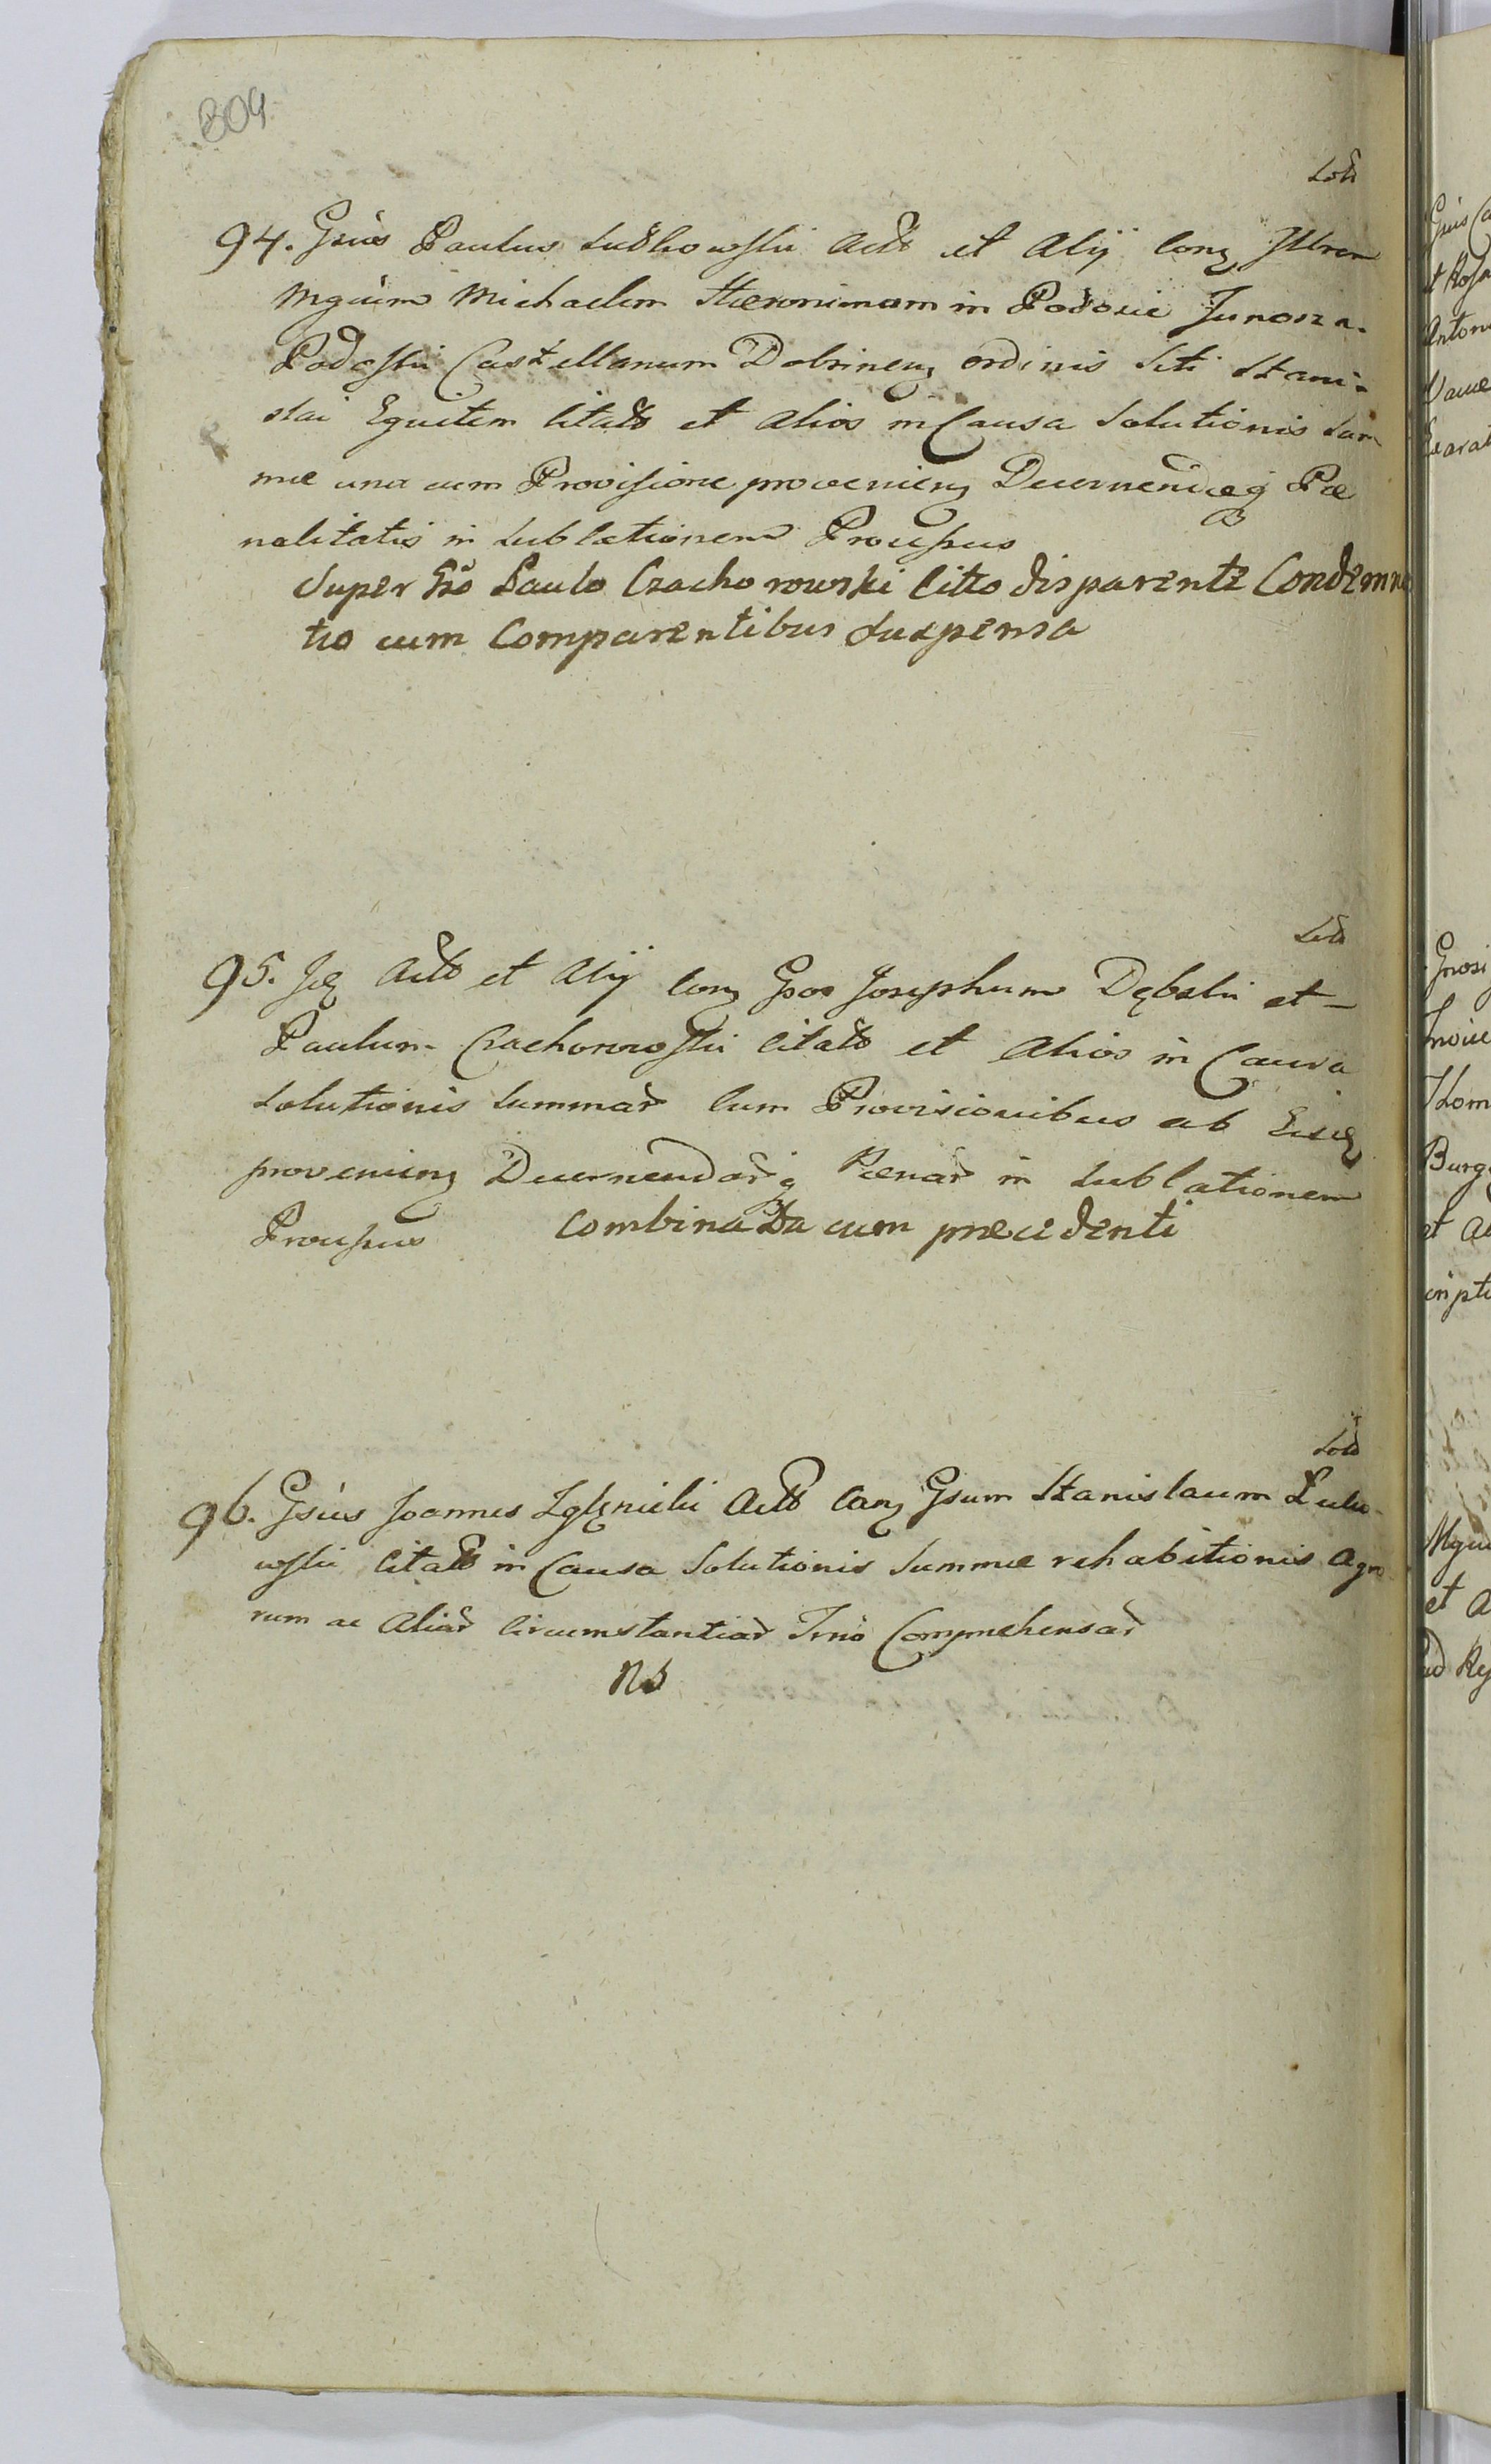 304
94. Gsus Paulus Sudkowski Actto et Alij Conz Illrem
Mgcum Michaelem Hieronimum in Podosie Junosza
Podoski Castellanum Dobrinenz ordinis Scti Stani-
slai Equitem Citatto et Alios in Causa Solutionis Sum
mæ una cum Provisione provenienz Decernendæq Pœ
nalitatis in Sublationem Processus
Super Gso Paulo Czachorowski Citto disparente Condemna
tio cum Comparentibus Suspensa
95. Idq Actto et Alij Conz Gsos Josephum Dębski et
Paulum Czachorowski Citatto et Alios in Causa
Solutionis Summar Cum Provisionibus ab Eisq
provenienz Decernendarq Pœnar in Sublationem
Processus Combinata cum præcedenti
96. Gsus Joannes Zglynicki Actto Conz Gsum Stanislaum
wski Citatto in Causa Solutionis Summæ rehabitionis Agro
rum ac Aliar Circumstantiar Trno Comprehensar
NS